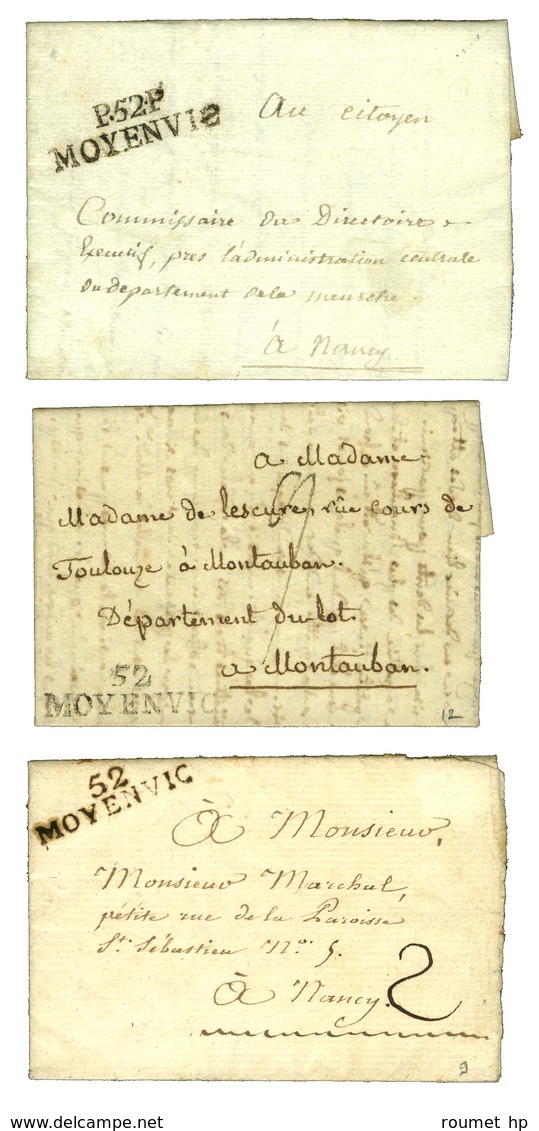 P.52.P
MOYENVIC
Au citoyen
Commissaire du Directoire
Executif, pres l'administration centrale
du departement de la meurthe.
à Nancy
a Madame
Madame de lescure, rüe cours de
Toulouze à Montauban.
Département du lot
a Montauban.
52
MOYENVIC
12
52
MOYENVIC
à Monsieur,
Monsieur Marchal,
pétite rue de la Paroisse
St. Sébastien No. 5.
à Nancy.
2
9
roumet hp